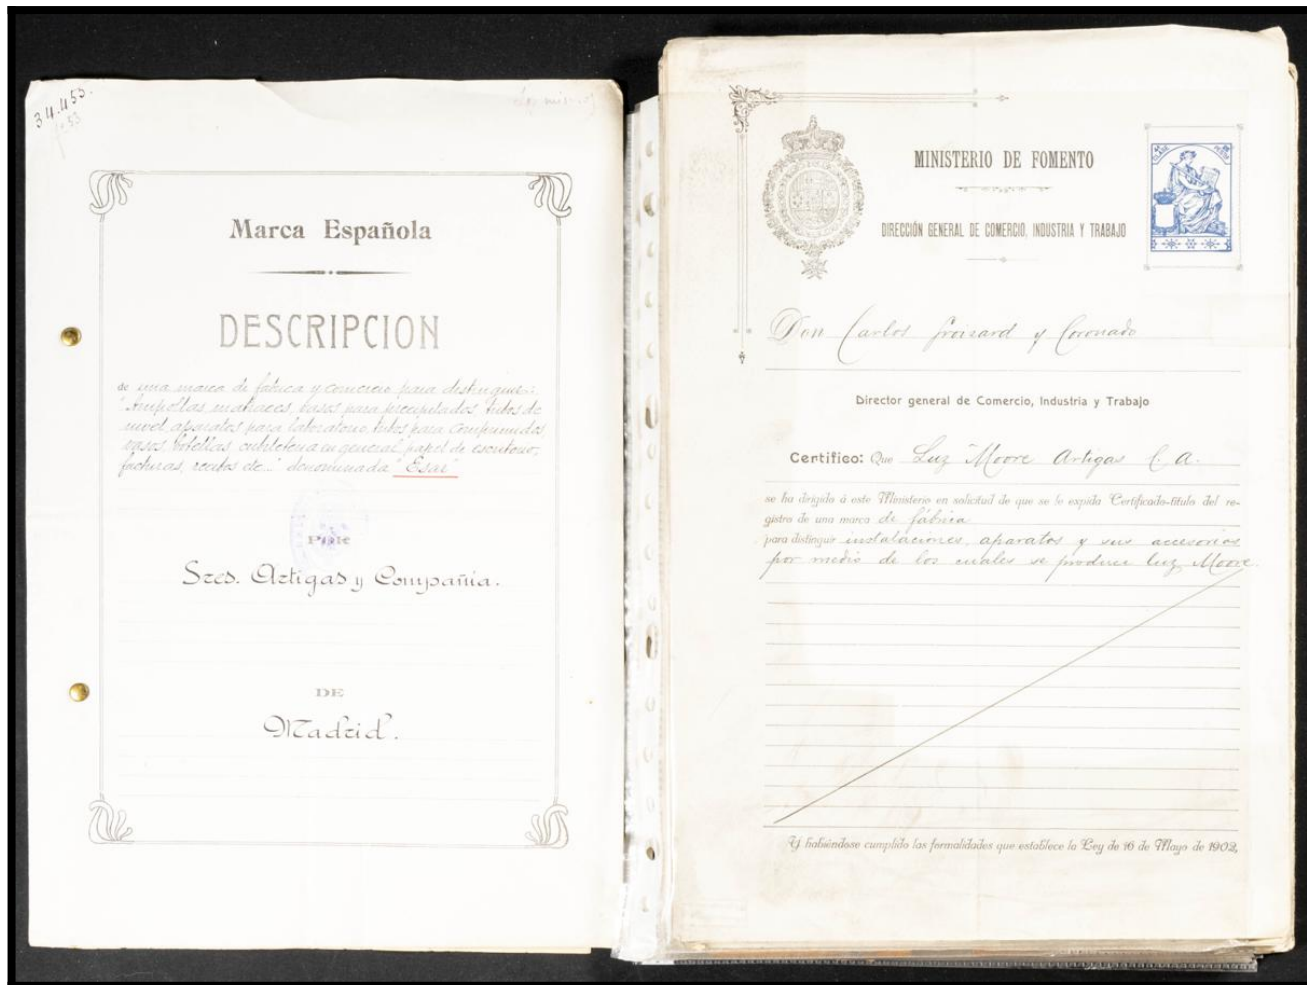 34.453.
53
Marca Española
DESCRIPCION
de una marca de fabrica y comercio para distinguir:
"Ampollas matraces, vasos para precipitados, tubos de
nivel, aparatos para laboratorio, tubos para comprimidos
vasos, botellas, cubileteria en general, papel de escritorio,
facturas, recibos de..." denominada "Esar"
POR
Sres. Artigas y Compañía.
DE
Madrid.
MINISTERIO DE FOMENTO
DIRECCIÓN GENERAL DE COMERCIO, INDUSTRIA Y TRABAJO
Don Carlos Groizard y Coronado
Director general de Comercio, Industria y Trabajo
Certifico: Que Luz Moore Artigas C. A.
se ha dirigido á este Ministerio en solicitud de que se le expida Certificado-título del re-
gistro de una marca de fábrica
para distinguir instalaciones, aparatos y sus accesorios
por medio de los cuales se produce luz Moore.
Y habiéndose cumplido las formalidades que establece la Ley de 16 de Mayo de 1902,